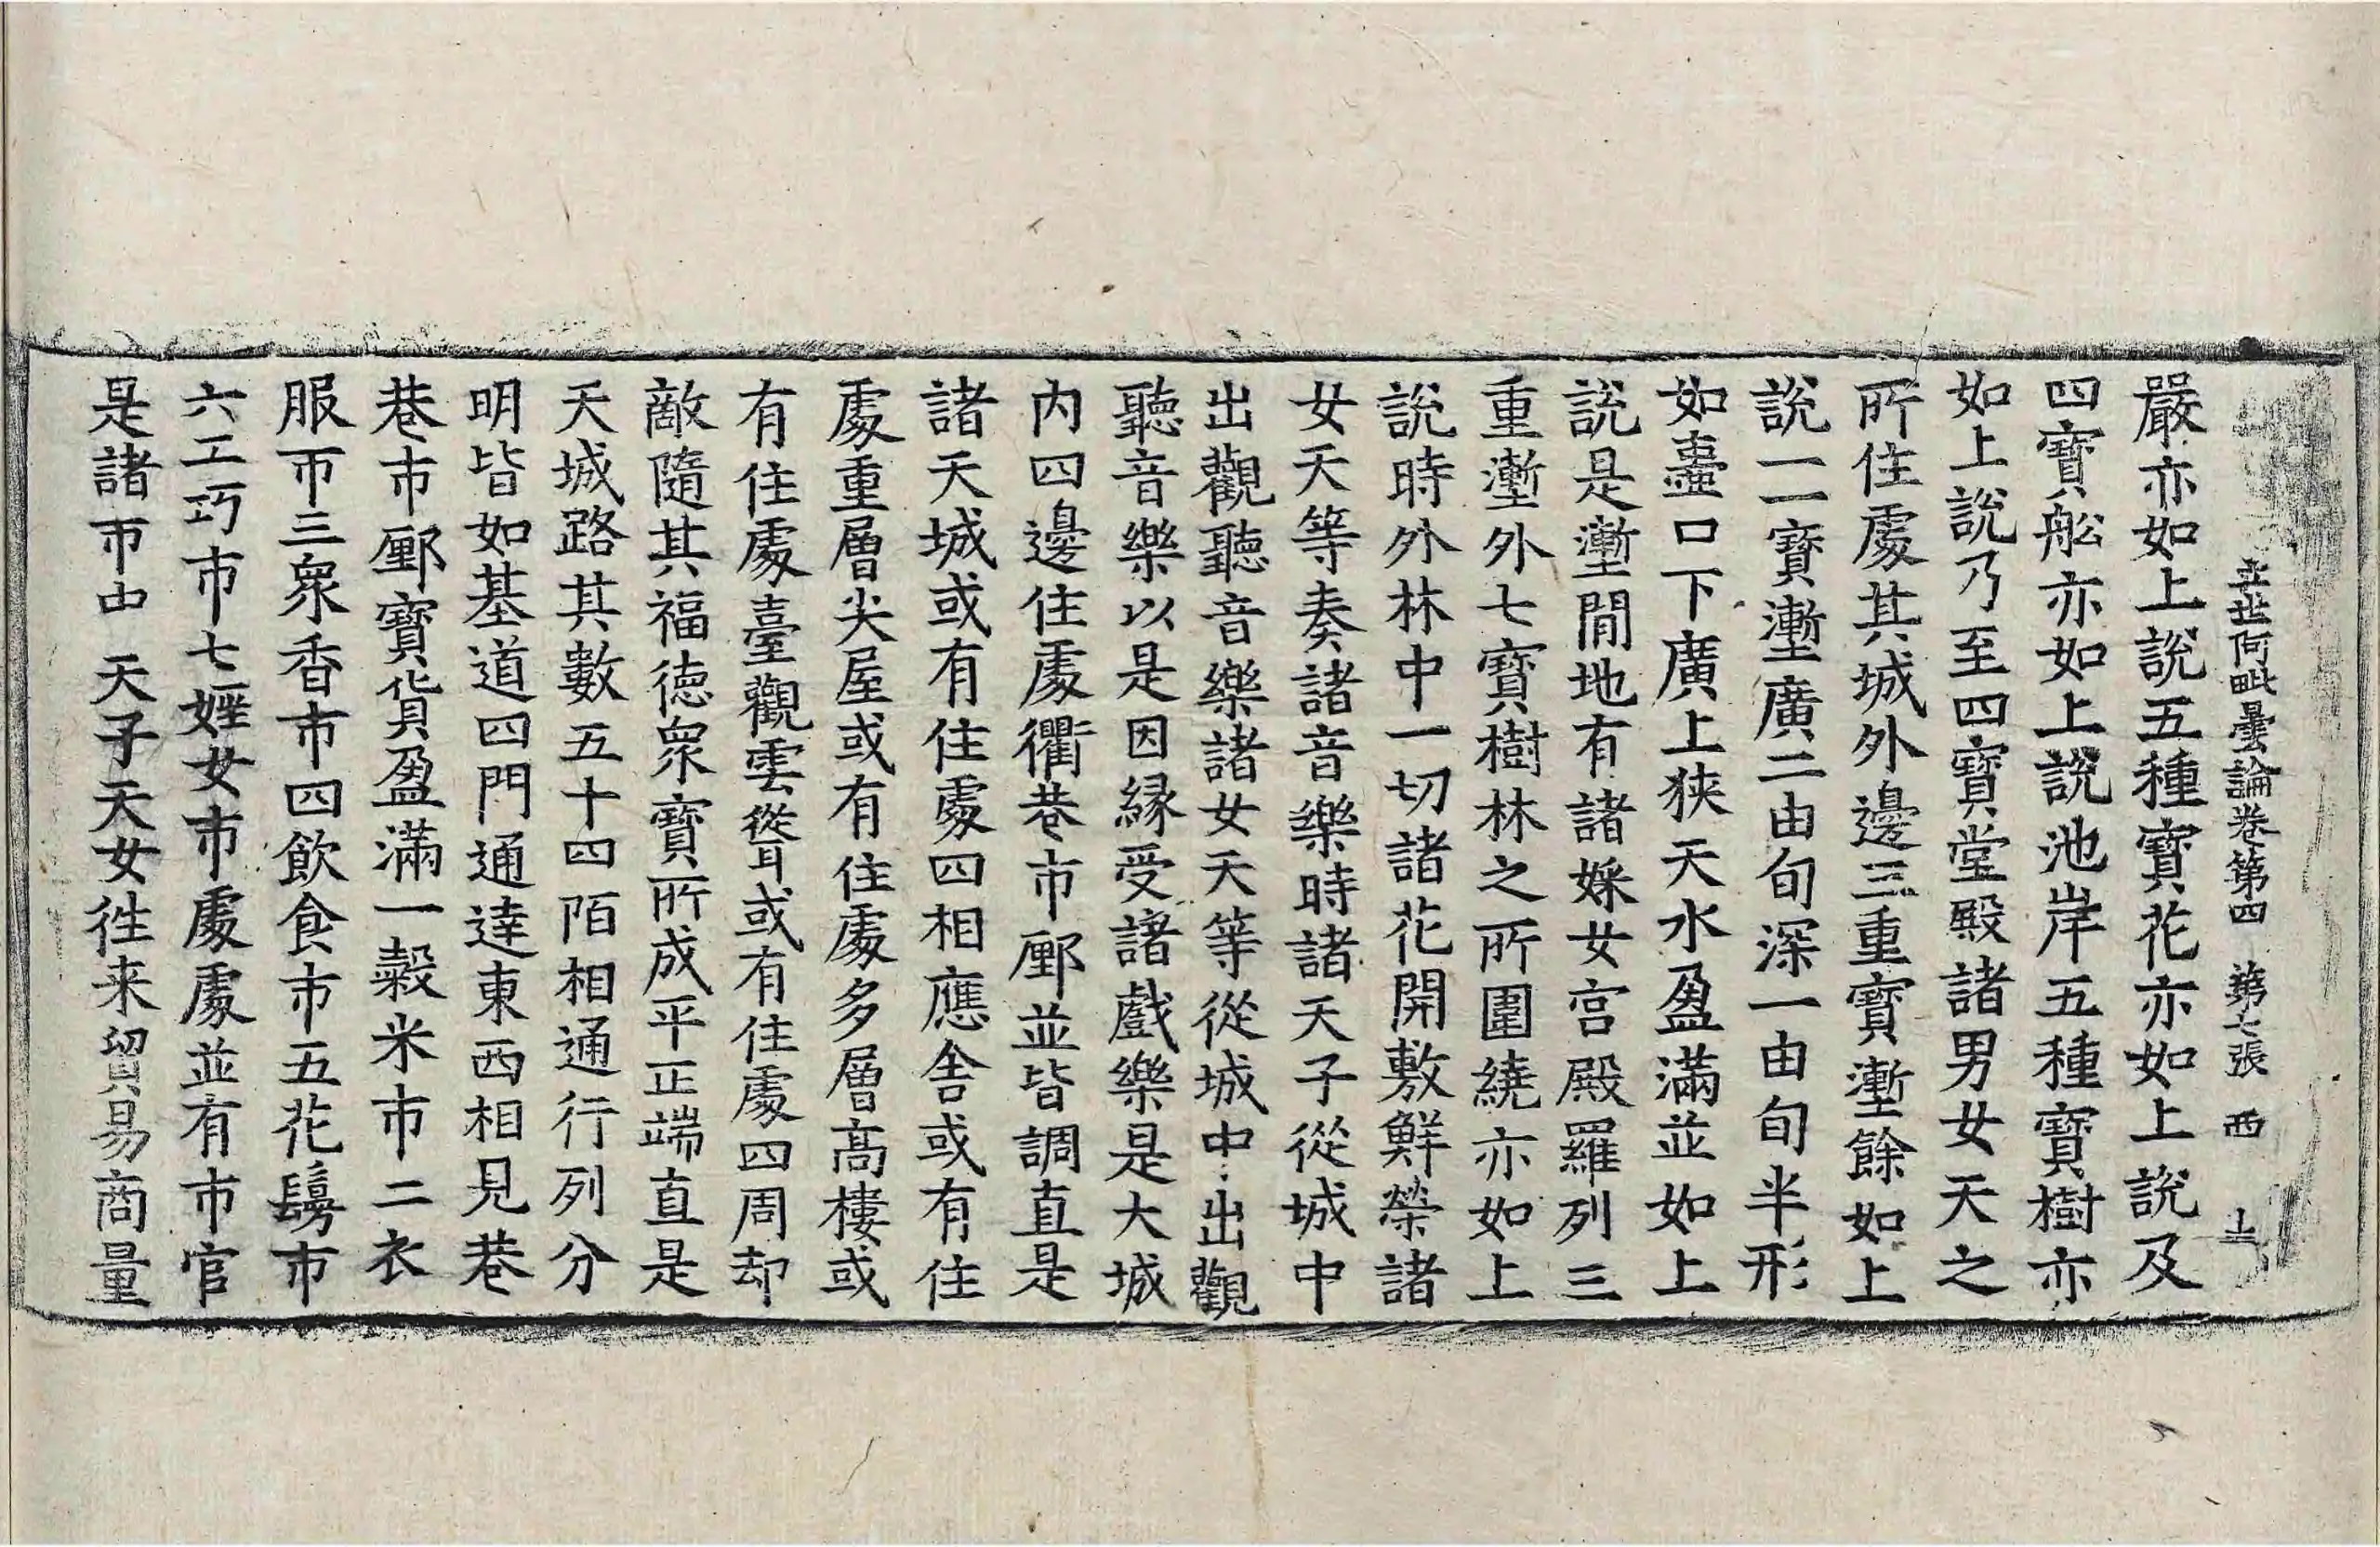 立世阿毗曇論卷第四 第七張 西
嚴亦如上說五種寶花亦如上說及
四寶舩亦如上說池岸五種寶樹亦
如上說乃至四寶堂殿諸男女天之
所住處其城外邊三重寶壍餘如上
說一一寶壍廣二由旬深一由旬半形
如壷口下廣上狹天水盈滿並如上
說是壍間地有諸婇女宮殿羅列三
重壍外七寶樹林之所圍繞亦如上
說時外林中一切諸花開敷鮮榮諸
女天等奏諸音樂時諸天子從城中
出觀聽音樂諸女天等從城中出觀
聽音樂以是因緣受諸戲樂是大城
內四邊住處衢巷市鄽並皆調直是
諸天城或有住處四相應舍或有住
處重層尖屋或有住處多層高樓或
有住處臺觀雲聳或有住處四周却
敵隨其福德衆寶所成平正端直是
天城路其數五十四陌相通行列分
明皆如基道四門通達東西相見巷
巷市鄽寶貨盈滿一穀米市二衣
服市三衆香市四飲食市五花鬘市
六工巧市七婬女市處處並有市官
是諸市中天子天女徃来貿易商量